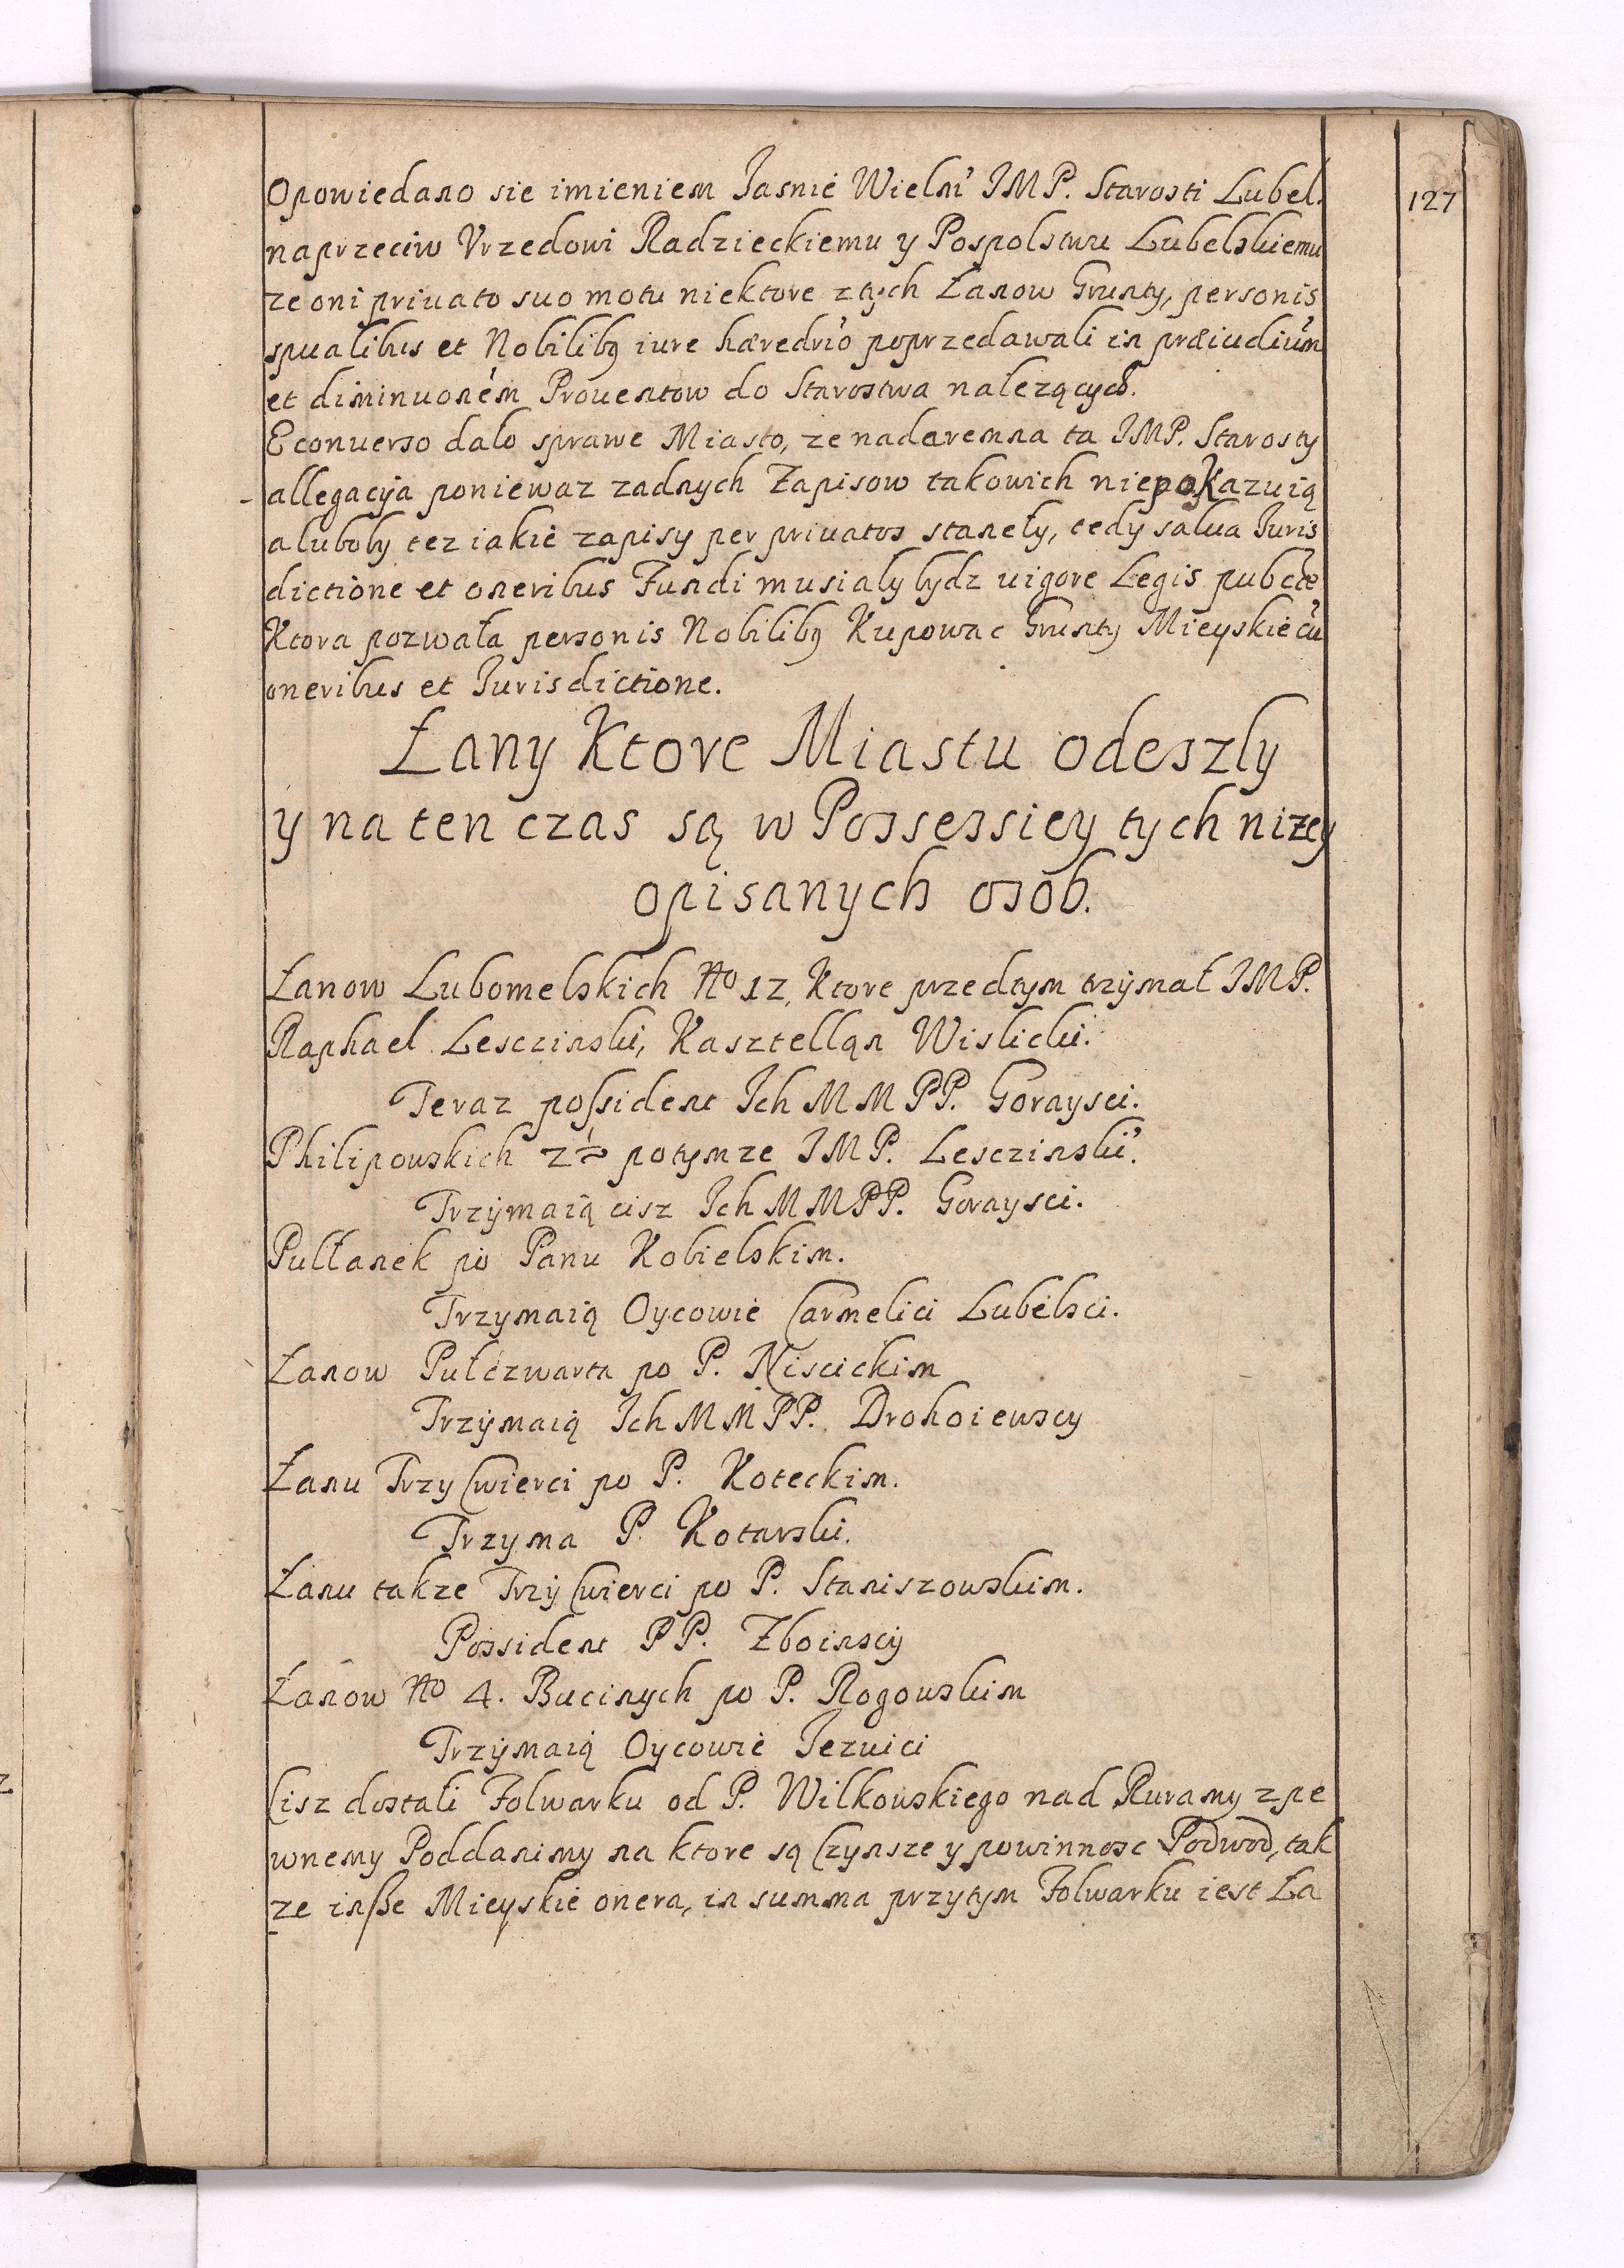 Opowiedano sie imieniem Jasnie Wielm' JMP. Starosti Lubel.
127
naprzeciw Vrzedowi Radzieckiemu y Pospolstwu Lubelskiemu
ze oni priuato suo motu niektore z tych Łanow Grunty, personis
spualibus et Nobilibq iure hæredrio poprzedawali in præiudium
et diminuonem Prouentow do Starostwa nalezących.
Econuerso dało sprawe Miasto, ze nadaremna ta JMP. Starosty
allegacya poniewaz zadnych Zapisow takowich niepokazuią
a luboby tez iakie zapisy per priuatos staneły, tedy salua Juris
dictione et oneribus Fundi musiały bydz uigore Legis pubcæ
Ktora pozwała personis Nobilibq Kupowac Grunty Mieyskie cu
oneribus et Jurisdictione.
Łany Ktore Miastu odeszly
y na ten czas są w Possessiey tych nizey
opisanych osob.
Łanow Lubomelskich No 12, Ktore przedtym trzymał JMP.
Raphael Lesczinski, Kasztelląn Wislicki.
Teraz possident Ich MM PP. Goraysci.
Philipowskich 2½ potymze JMP. Lesczinski.
Trzymaią cisz Ich MM PP. Goraysci.
Pułłanek po Panu Kobielskim.
Trzymaią Oycowie Carmelici Lubelsci.
Łanow Pułczwarta po P. Niscickim
Trzymaią Ich MM PP. Drohoiewscy
Łanu Trzy Cwierci po P. Koteckim.
Trzyma P. Kotarski.
Łanu takze Trzy Cwierci po P. Staniszowskim.
Possident PP. Zboinscy
Łanow No 4. Bucinych po P. Rogowskim
Trzymaią Oycowie Jezuici
Cisz dostali Folwarku od P. Wilkowskiego nad Ruramy z pe
wnemy Poddanimy na ktore są Czynsze y powinnosc Podwod, tak
ze insße Mieyskie onera, in summa przytym Folwarku iest Ła